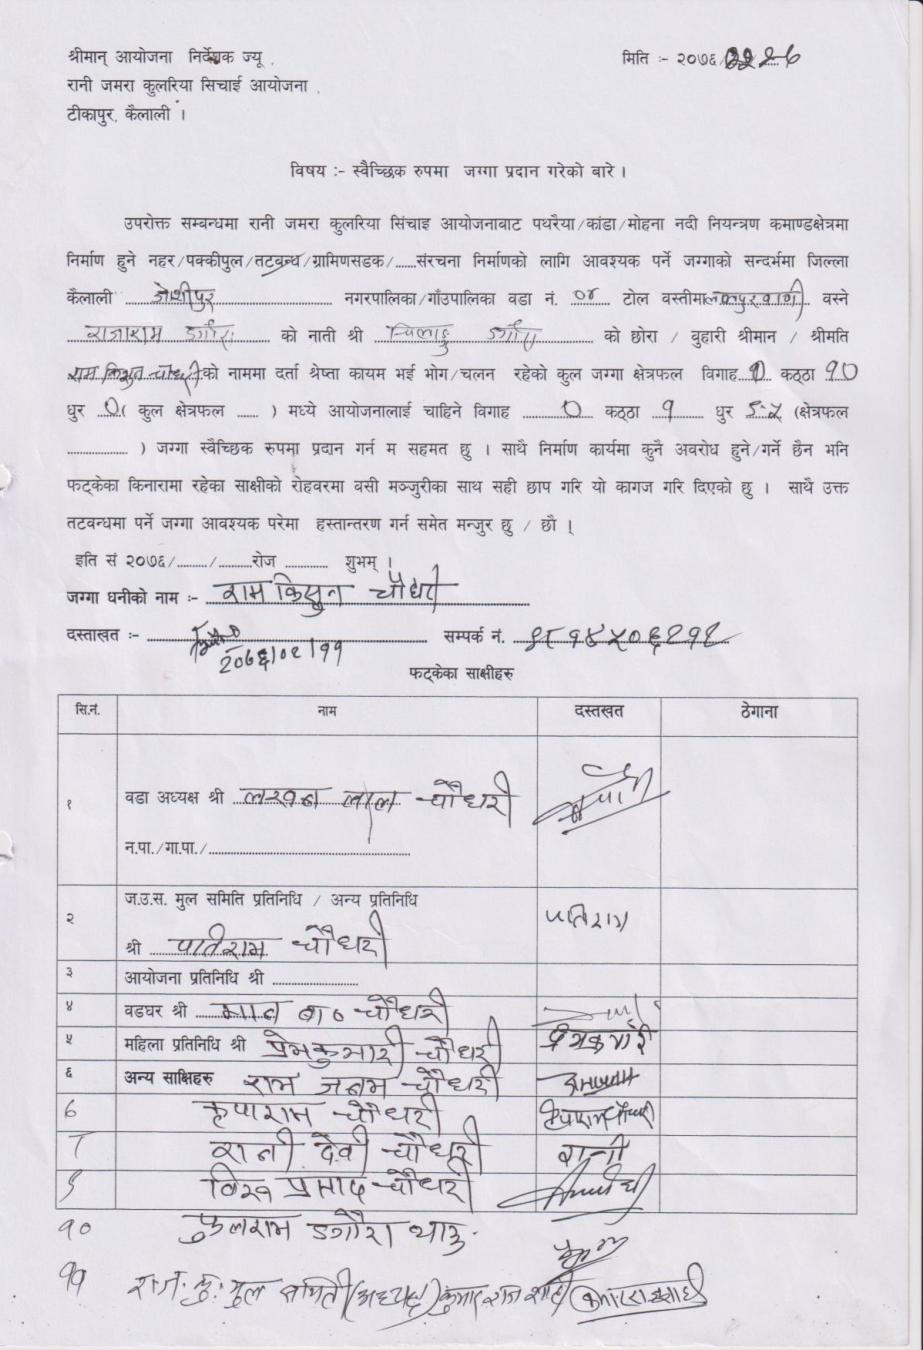 श्रीमान् आयोजना निर्देशक ज्यू ,
मिति :- २०७६
रानी जमरा कुलरिया सिचाई आयोजना ,
टीकापुर, कैलाली ।
विषय :- स्वैच्छिक रुपमा जग्गा प्रदान गरेको बारे ।
उपरोक्त सम्बन्धमा रानी जमरा कुलरिया सिंचाइ आयोजनाबाट पथरैया/कांडा/मोहना नदी नियन्त्रण कमाण्डक्षेत्रमा
निर्माण हुने नहर/पक्कीपुल/तटबन्ध/ग्रामिणसडक/......संरचना निर्माणको लागि आवश्यक पर्ने जग्गाको सन्दर्भमा जिल्ला
कैलाली जोशीपुर नगरपालिका/गाँउपालिका वडा नं. ०४ टोल वस्ती वस्ने
राजाराम डगौरा को नाती श्री डगौरा को छोरा / बुहारी श्रीमान / श्रीमति
राम किसुन चौधरी को नाममा दर्ता श्रेष्ता कायम भई भोग/चलन रहेको कुल जग्गा क्षेत्रफल विगाह 0 कठ्ठा १०
धुर 0 ( कुल क्षेत्रफल ...... ) मध्ये आयोजनालाई चाहिने विगाह 0 कठ्ठा १ धुर (क्षेत्रफल
.................. ) जग्गा स्वैच्छिक रुपमा प्रदान गर्न म सहमत छु । साथै निर्माण कार्यमा कुनै अवरोध हुने/गर्ने छैन भनि
फट्केका किनारामा रहेका साक्षीको रोहवरमा वसी मञ्जुरीका साथ सही छाप गरि यो कागज गरि दिएको छु । साथै उक्त
तटवन्धमा पर्ने जग्गा आवश्यक परेमा हस्तान्तरण गर्न समेत मन्जुर छु / छौ ।
इति सं २०७६/........./.........रोज ............ शुभम् ।
जग्गा धनीको नाम :- राम किसुन चौधरी
दस्ताखत :- सम्पर्क नं. ९८१४५०६२१२
२०७६/०२/११
फट्केका साक्षीहरु
सि.नं. नाम दस्तखत ठेगाना
१ वडा अध्यक्ष श्री लखन लाल चौधरी
न.पा./गा.पा./..................................................
२ ज.उ.स. मुल समिति प्रतिनिधि / अन्य प्रतिनिधि
श्री पातिराम चौधरी पतिराम
३ आयोजना प्रतिनिधि श्री .........................
४ वडघर श्री मान ब० चौधरी
५ महिला प्रतिनिधि श्री प्रेमकुमारी चौधरी प्रेमकुमारी
६ अन्य साक्षिहरु राम जनम चौधरी
6 कृपाराम चौधरी
रानी देवी चौधरी रानी
प्रसाद चौधरी
१० फुलराम डगौरा थारु
११ रा.ज.कु. मुल समिति (अध्यक्ष) कुमार राज शाही